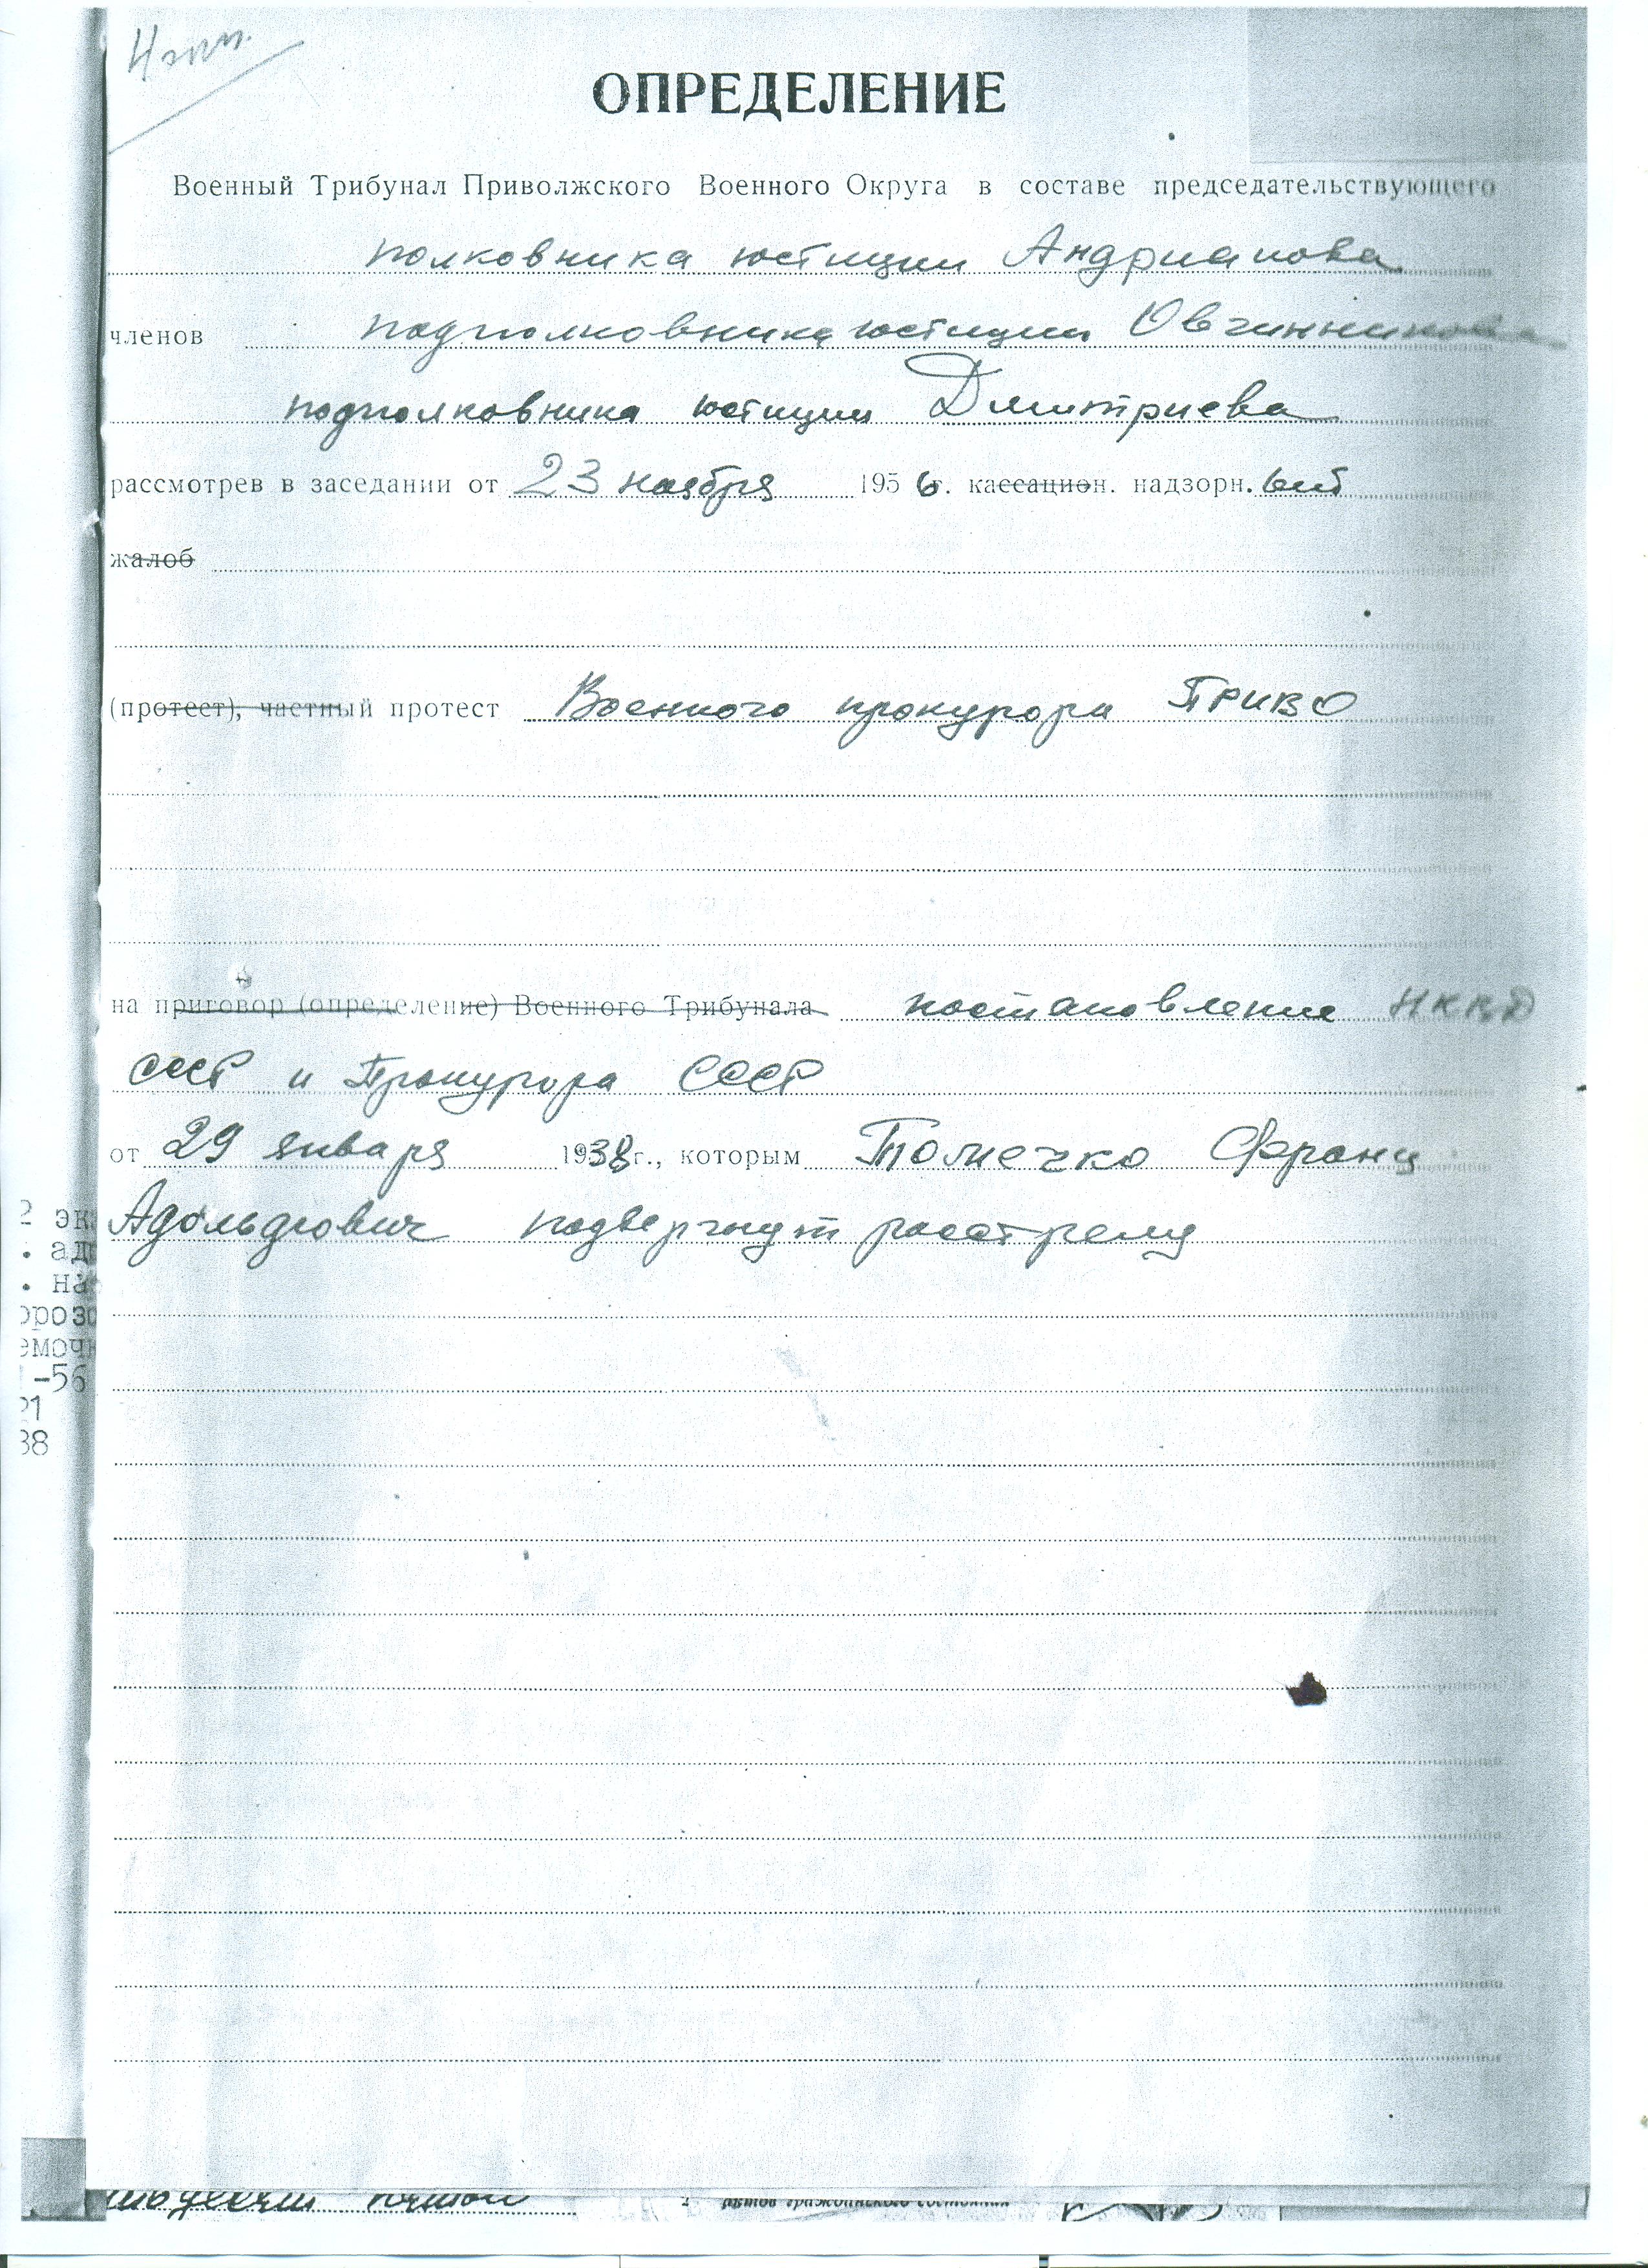 4 экз.
ОПРЕДЕЛЕНИЕ
Военный Трибунал Приволжского Военного Округа в составе председательствующего
полковника юстиции Андрианова
членов подполковника юстиции Овчинникова
подполковника юстиции Дмитриева
рассмотрев в заседании от 23 ноября 1956г. кассацион. надзорн.ый
жалоб
(протест), частный протест Военного прокурора ПриВО
на приговор (определение) Военного Трибунала постановление НКВД
СССР и Прокурора СССР
от 29 января 1938г., которым Толмечко Франц
Адольфович подвергнут расстрелу
2 эк
. ад
. на
ороз
емочк
-56
21
38
актов гражданского состояния